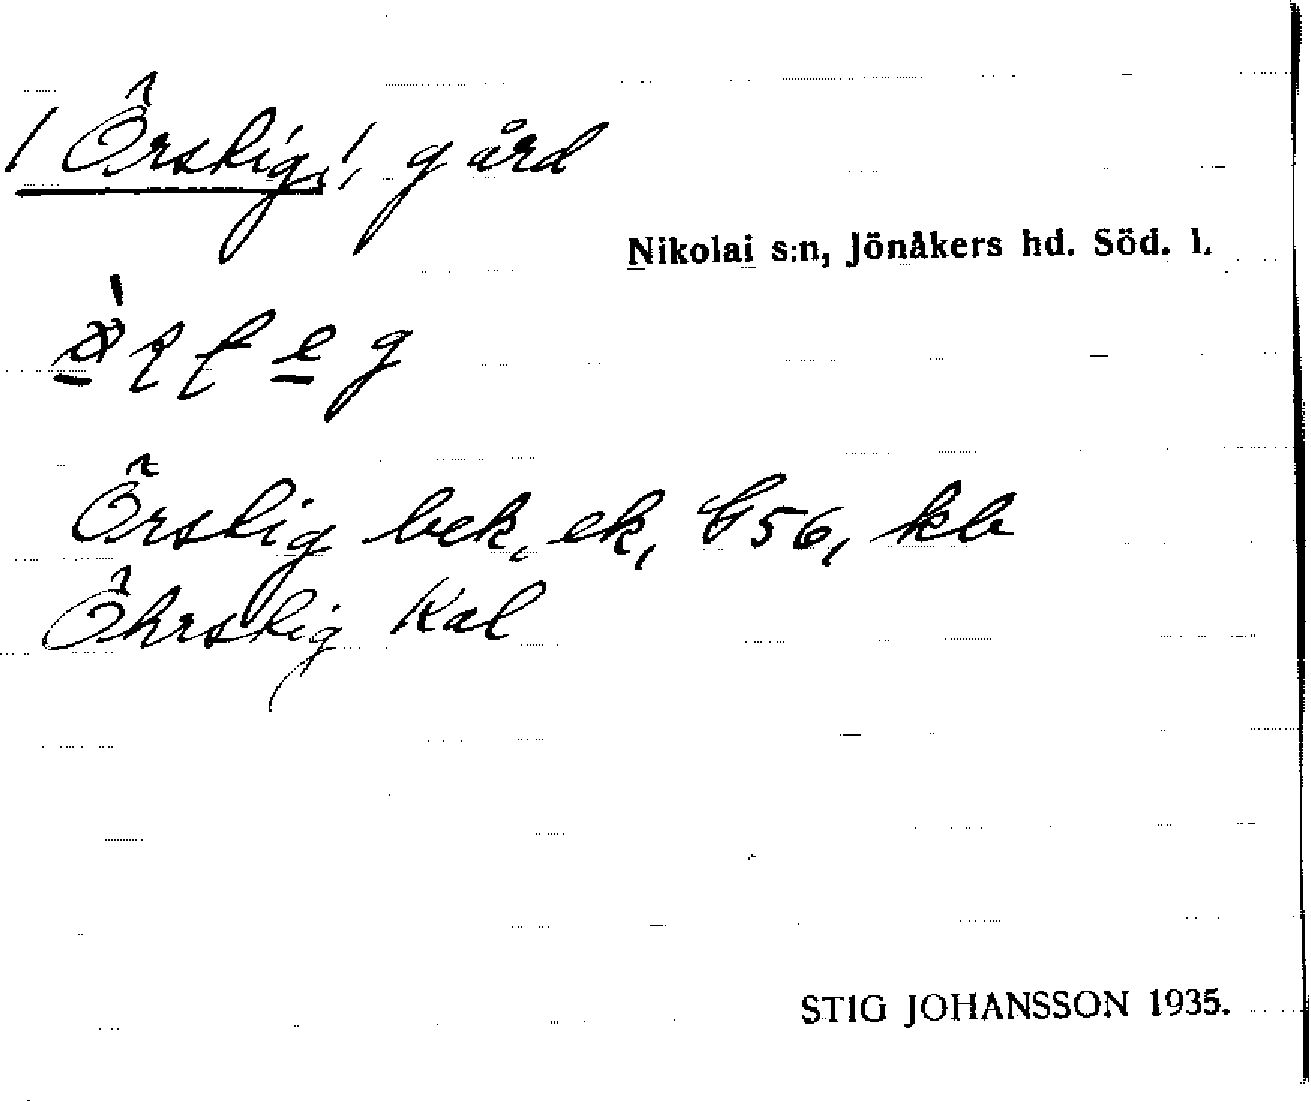 /Örslig,/, gård
Nikolai s:n, Jönåkers hd. Söd. l.
Örslig bek, ek, G56, kb
Öhrslig Kal
STIG JOHANSSON 1935.